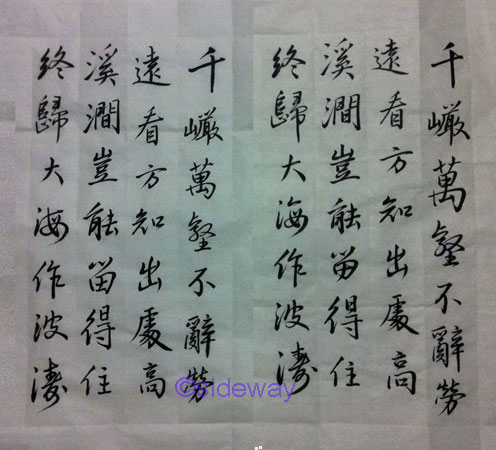 千巖萬壑不辭勞
遠看方知出處高
溪澗豈能留得住
終歸大海作波濤
千巖萬壑不辭勞
遠看方知出處高
溪澗豈能留得住
終歸大海作波濤
©sideway